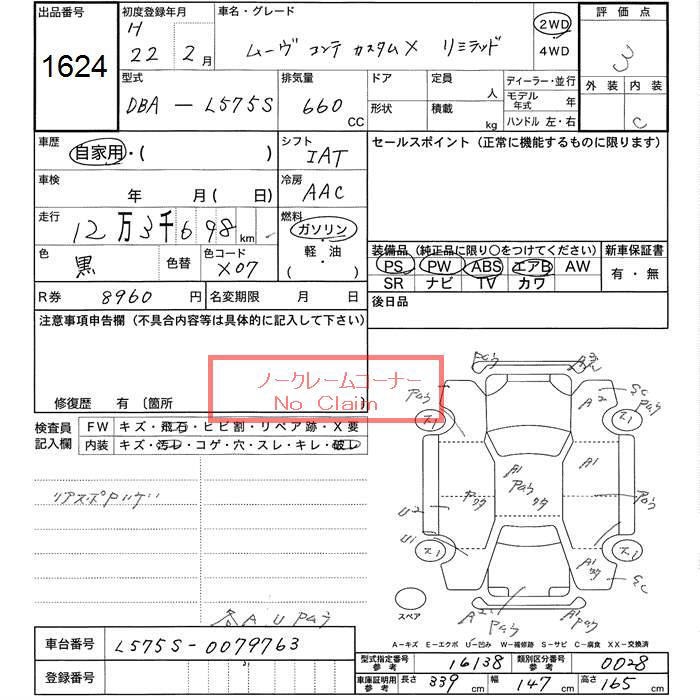 出品番号 初度登録年月 車名・グレード 評価点
1624
H
22 2月 ムーヴ コンテ カスタムX リミテッド 2WD 3
4WD
型式 排気量 ドア 定員 ディーラー・並行 外装 内装
人 モデル年式 年
DBA - L575S 660 CC 形状 積載 kg ハンドル 左・右 C
車歴 自家用・( ) シフト IAT セールスポイント (正常に機能するものに限ります)
車検 年 月 ( 日) 冷房 AAC
走行 12万3千698km 燃料 ガソリン・軽・油 ( )
色 黒 色替 色コード X07
装備品 (純正品に限り○をつけてください) 新車保証書
PS PW ABS エアB AW 有・無
SR ナビ TV カワ
R券 8960円 名変期限 月 日 後日品
注意事項申告欄 (不具合内容等は具体的に記入して下さい)
ノークレームコーナー
No Claim
修復歴 有 〔箇所 〕
検査員記入欄 FW キズ・飛石・ヒビ割・リペア跡・X要
内装 キズ・汚レ・コゲ・穴・スレ・キレ・破レ
A2
A1
A1
U2
U1
スペア
各 A U
A-キズ E-エクボ U-凹み W-補修跡 S-サビ C-腐食 XX-交換済
車台番号 L575S-0079763
型式指定番号 参考 16138 類別区分番号 参考 0028
登録番号
車庫証明用 参考 長さ 339cm 幅 147cm 高さ 165cm